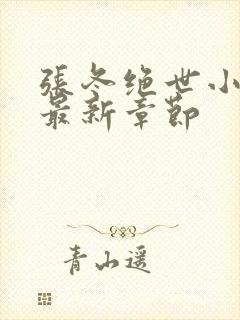 張冬绝世小
最新章節
青山遥